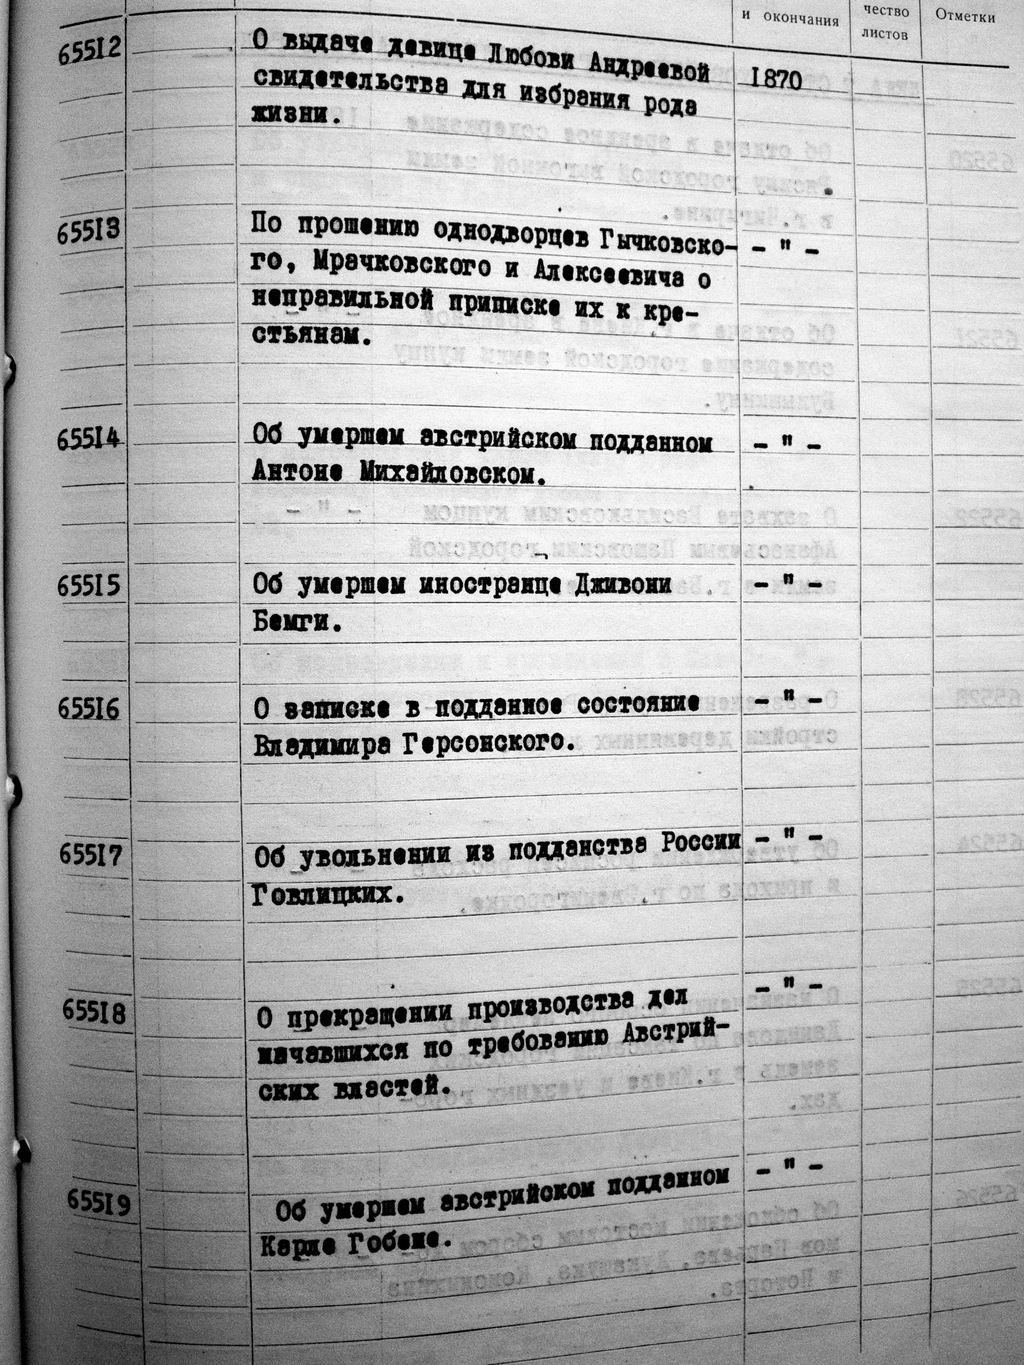 и окончания
чество
листов
Отметки
65512
О выдаче девице Любови Андреевой
свидетельства для избрания рода
жизни.
1870
65513
По прошению однодворцев Гычковско-
го, Мрачковского и Алексеевича о
неправильной приписке их к кре-
стьянам.
- " -
65514
Об умершем австрийском подданном
Антоне Михайловском.
- " -
65515
Об умершем иностранце Дживони
Бемги.
- " -
65516
О записке в подданное состояние
Владимира Герсонского.
- " -
65517
Об увольнении из подданства России
Говлицких.
- " -
65518
О прекращении производства дел
начавшихся по требованию Австрий-
ских властей.
- " -
65519
Об умершем австрийском подданном
Карле Гобене.
- " -